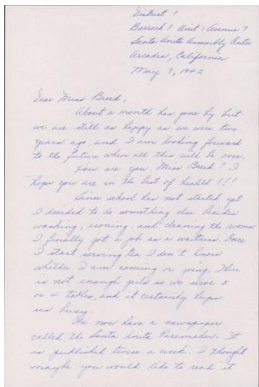 District 1
Barrack 7 Unit 1 Avenue ?
Santa Anita Assembly Center
Arcadia, California
May 7, 1942
Dear Miss Breed,
About a month has gone by but
we are still as happy as we were two
years ago and I am looking forward
to the future when all this will be over.
How are you, Miss Breed? I
hope you are in the best of health!!!
Since school has not started yet
I decided to do something else besides
washing, ironing, and cleaning the room
I finally got a job as a waitress. Once
I start serving tea I don't know
whether I am coming or going. There
is not enough girls so we serve 3
or 4 tables, and it certainly keeps
us busy.
We now have a newspaper
called the Santa Anita Pacemaker. It
is published twice a week. I thought
maybe you would like to read it